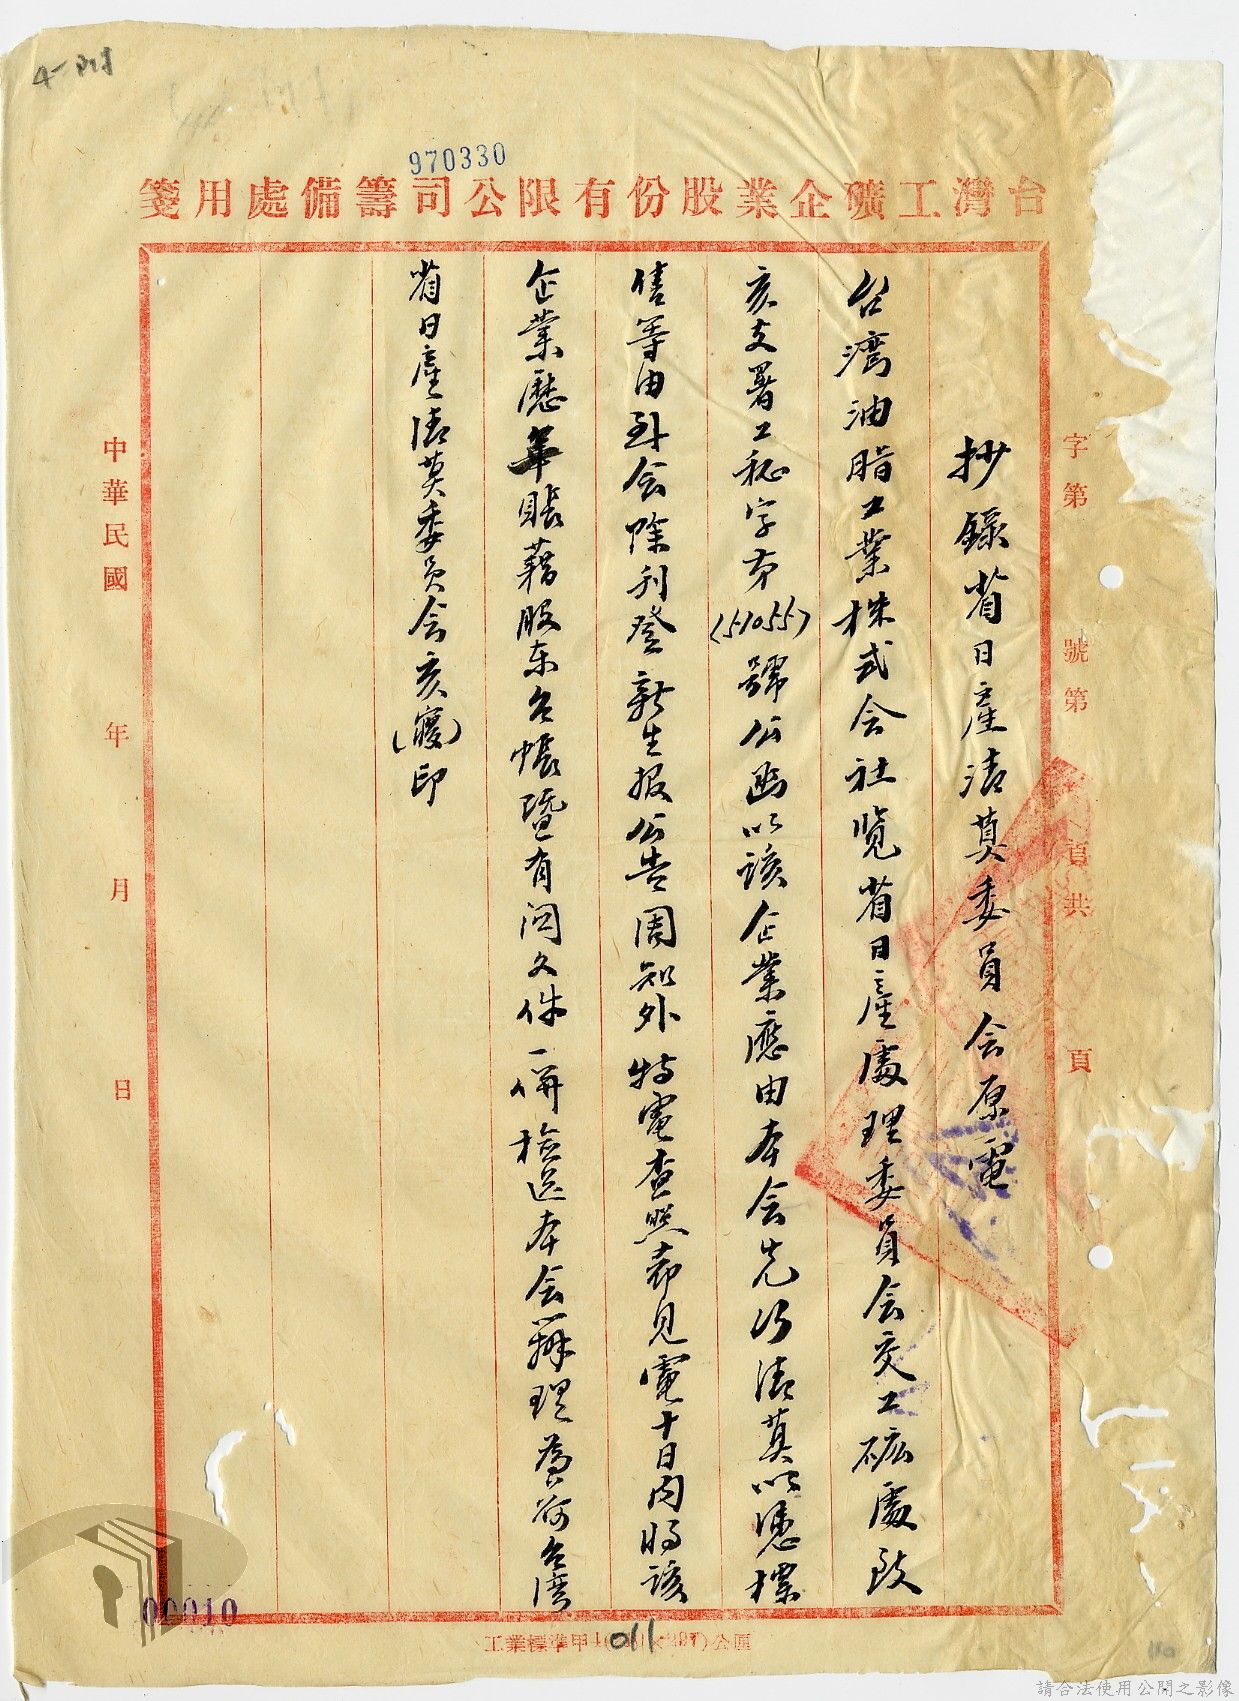 4-
970330
台灣工礦企業股份有限公司籌備處用箋
字第 號第 頁共 頁
抄錄省日産清算委員会原電
台湾油脂工業株式会社览省日産處理委員会交工砿處致
亥支署工秘字第(51055)號公函以該企業應由本会先行清算以憑標
售等由到会除刊登新生报公告周知外特電查照希見電十日内將該
企業歷年賬藉股东名帳暨有関文件一併檢送本会辦理為荷台湾
省日産清算委员会亥(寢)印
中華民國 年 月 日
00010
011
工業標準甲4( × 297)公厘
請合法使用公開之影像